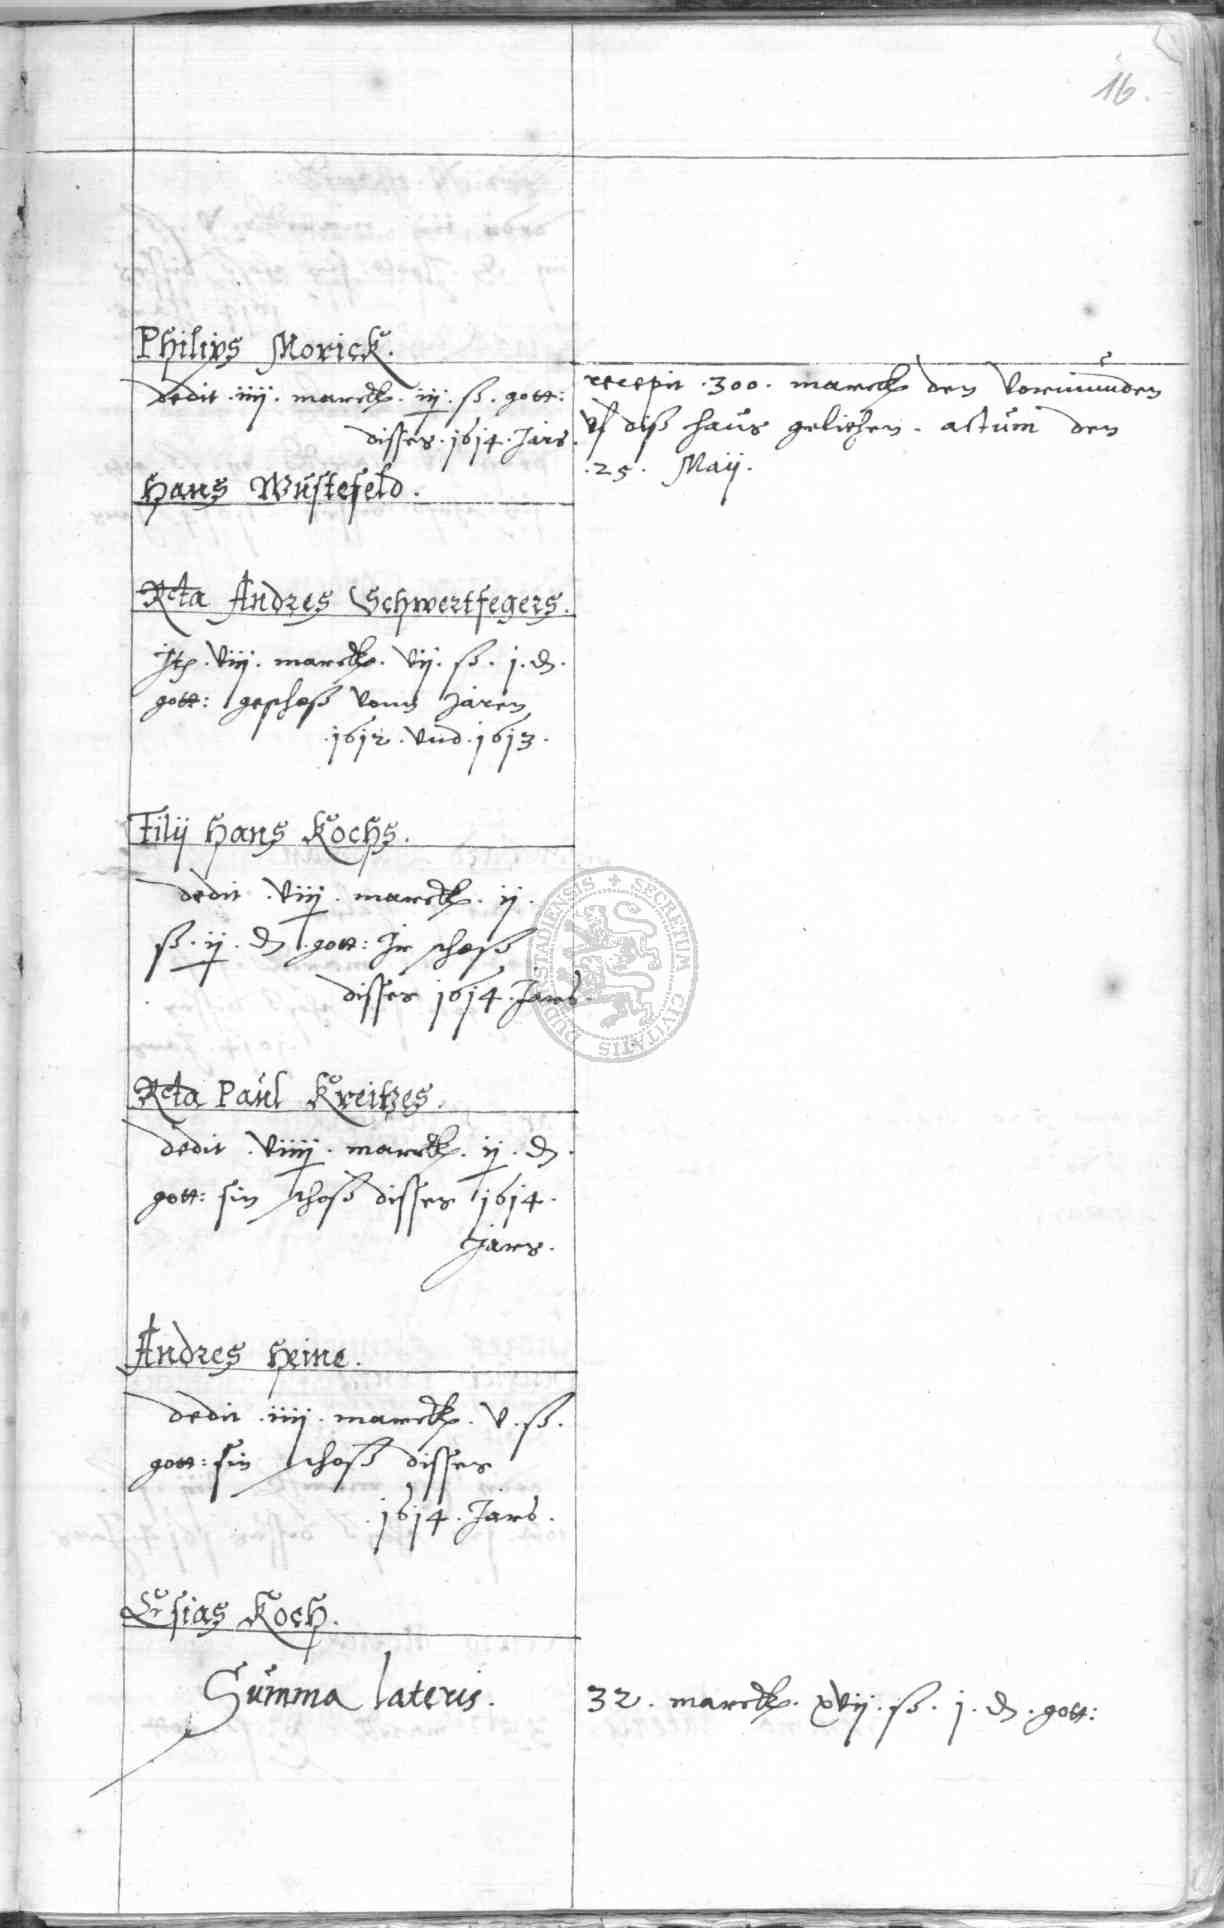 16.
Philips Morick.
dedit .iiij. marck. iij. ß. gott:
disses .1614. Jars.
recepit .300. marck den Vormunden
vf diß haus geliehen. actum den
.25. Maij.
Hans Wustefeld.
Rcta Andres Schwertfegers.
Jtem .viij. marck. vij. ß. j. ₰.
gott: geschoß vonn Jaren
.1612. vnd .1613.
Filij Hans Kochs.
dedit .viij. marck. ij.
ß. ij. ₰. gott: Jr schoß
disses 1614. Jars.
Rcta Paul Kreitzes.
dedit .viiij. marck. ij. ₰.
gott: sin schoß disses 1614.
Jars.
Andres Heine.
dedit .iiij. marck. v. ß.
gott: sin schoß disses
.1614. Jars.
Esias Koch.
Summa lateris.
32. marck. xvij. ß. j. ₰. gott:
SECRETUM CIVITATIS DUDERSTADIENSIS